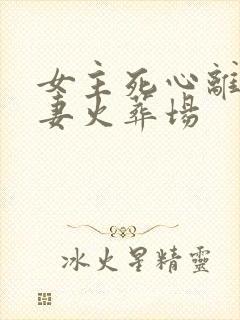 女主死心離
妻火葬場
冰火星精靈